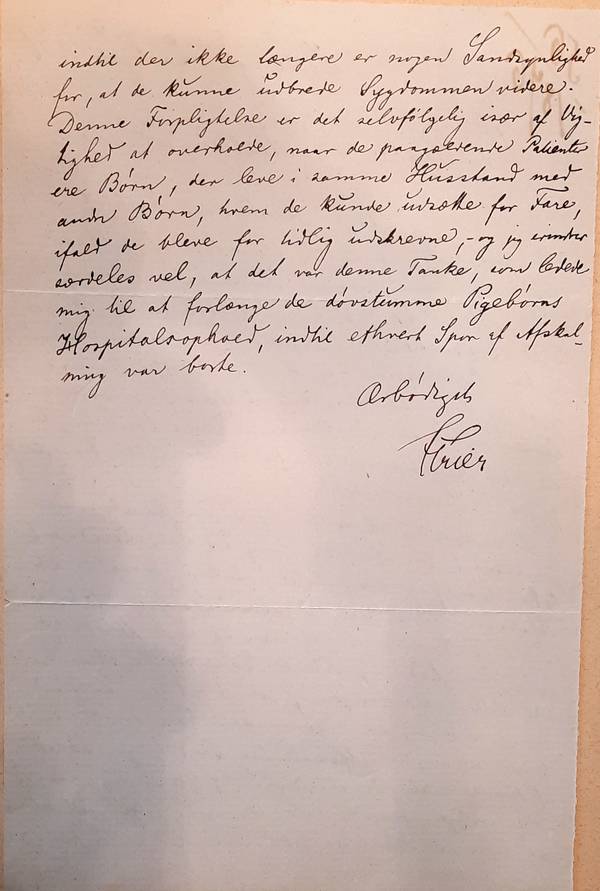 indtil der ikke længere er nogen Sandsynlighed
for, at de kunne udbrede Sygdommen videre.
Denne Forpligtelse er det selvfölgelig især af Vig-
tighed at overholde, naar de paagældende Patienter
ere Börn, der leve i samme Husstand med
andre Börn, hvem de kunde udsætte for Fare,
ifald de bleve for tidlig udskrevne, - og jeg erindrer
særdeles vel, at det var denne Tanke, som ledede
mig til at forlænge de døvstumme Pigebörns
Hospitalsophold, indtil ethvert Spor af Afskal-
ning var borte.
Ærbödigst
Trier